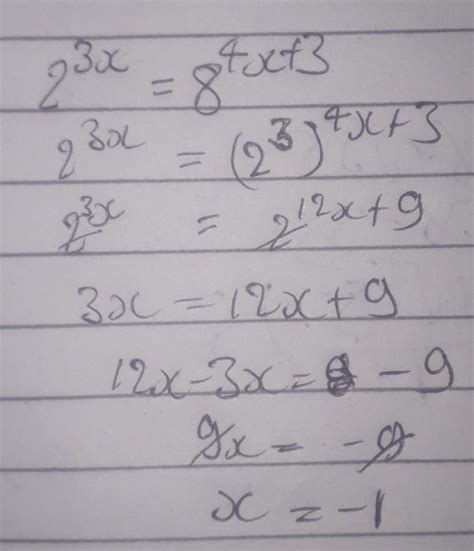 2^{3x} = 8^{4x+3}
2^{3x} = (2^3)^{4x+3}
2^{3x} = 2^{12x+9}
3x = 12x + 9
12x - 3x = - 9
9x = -9
x = -1